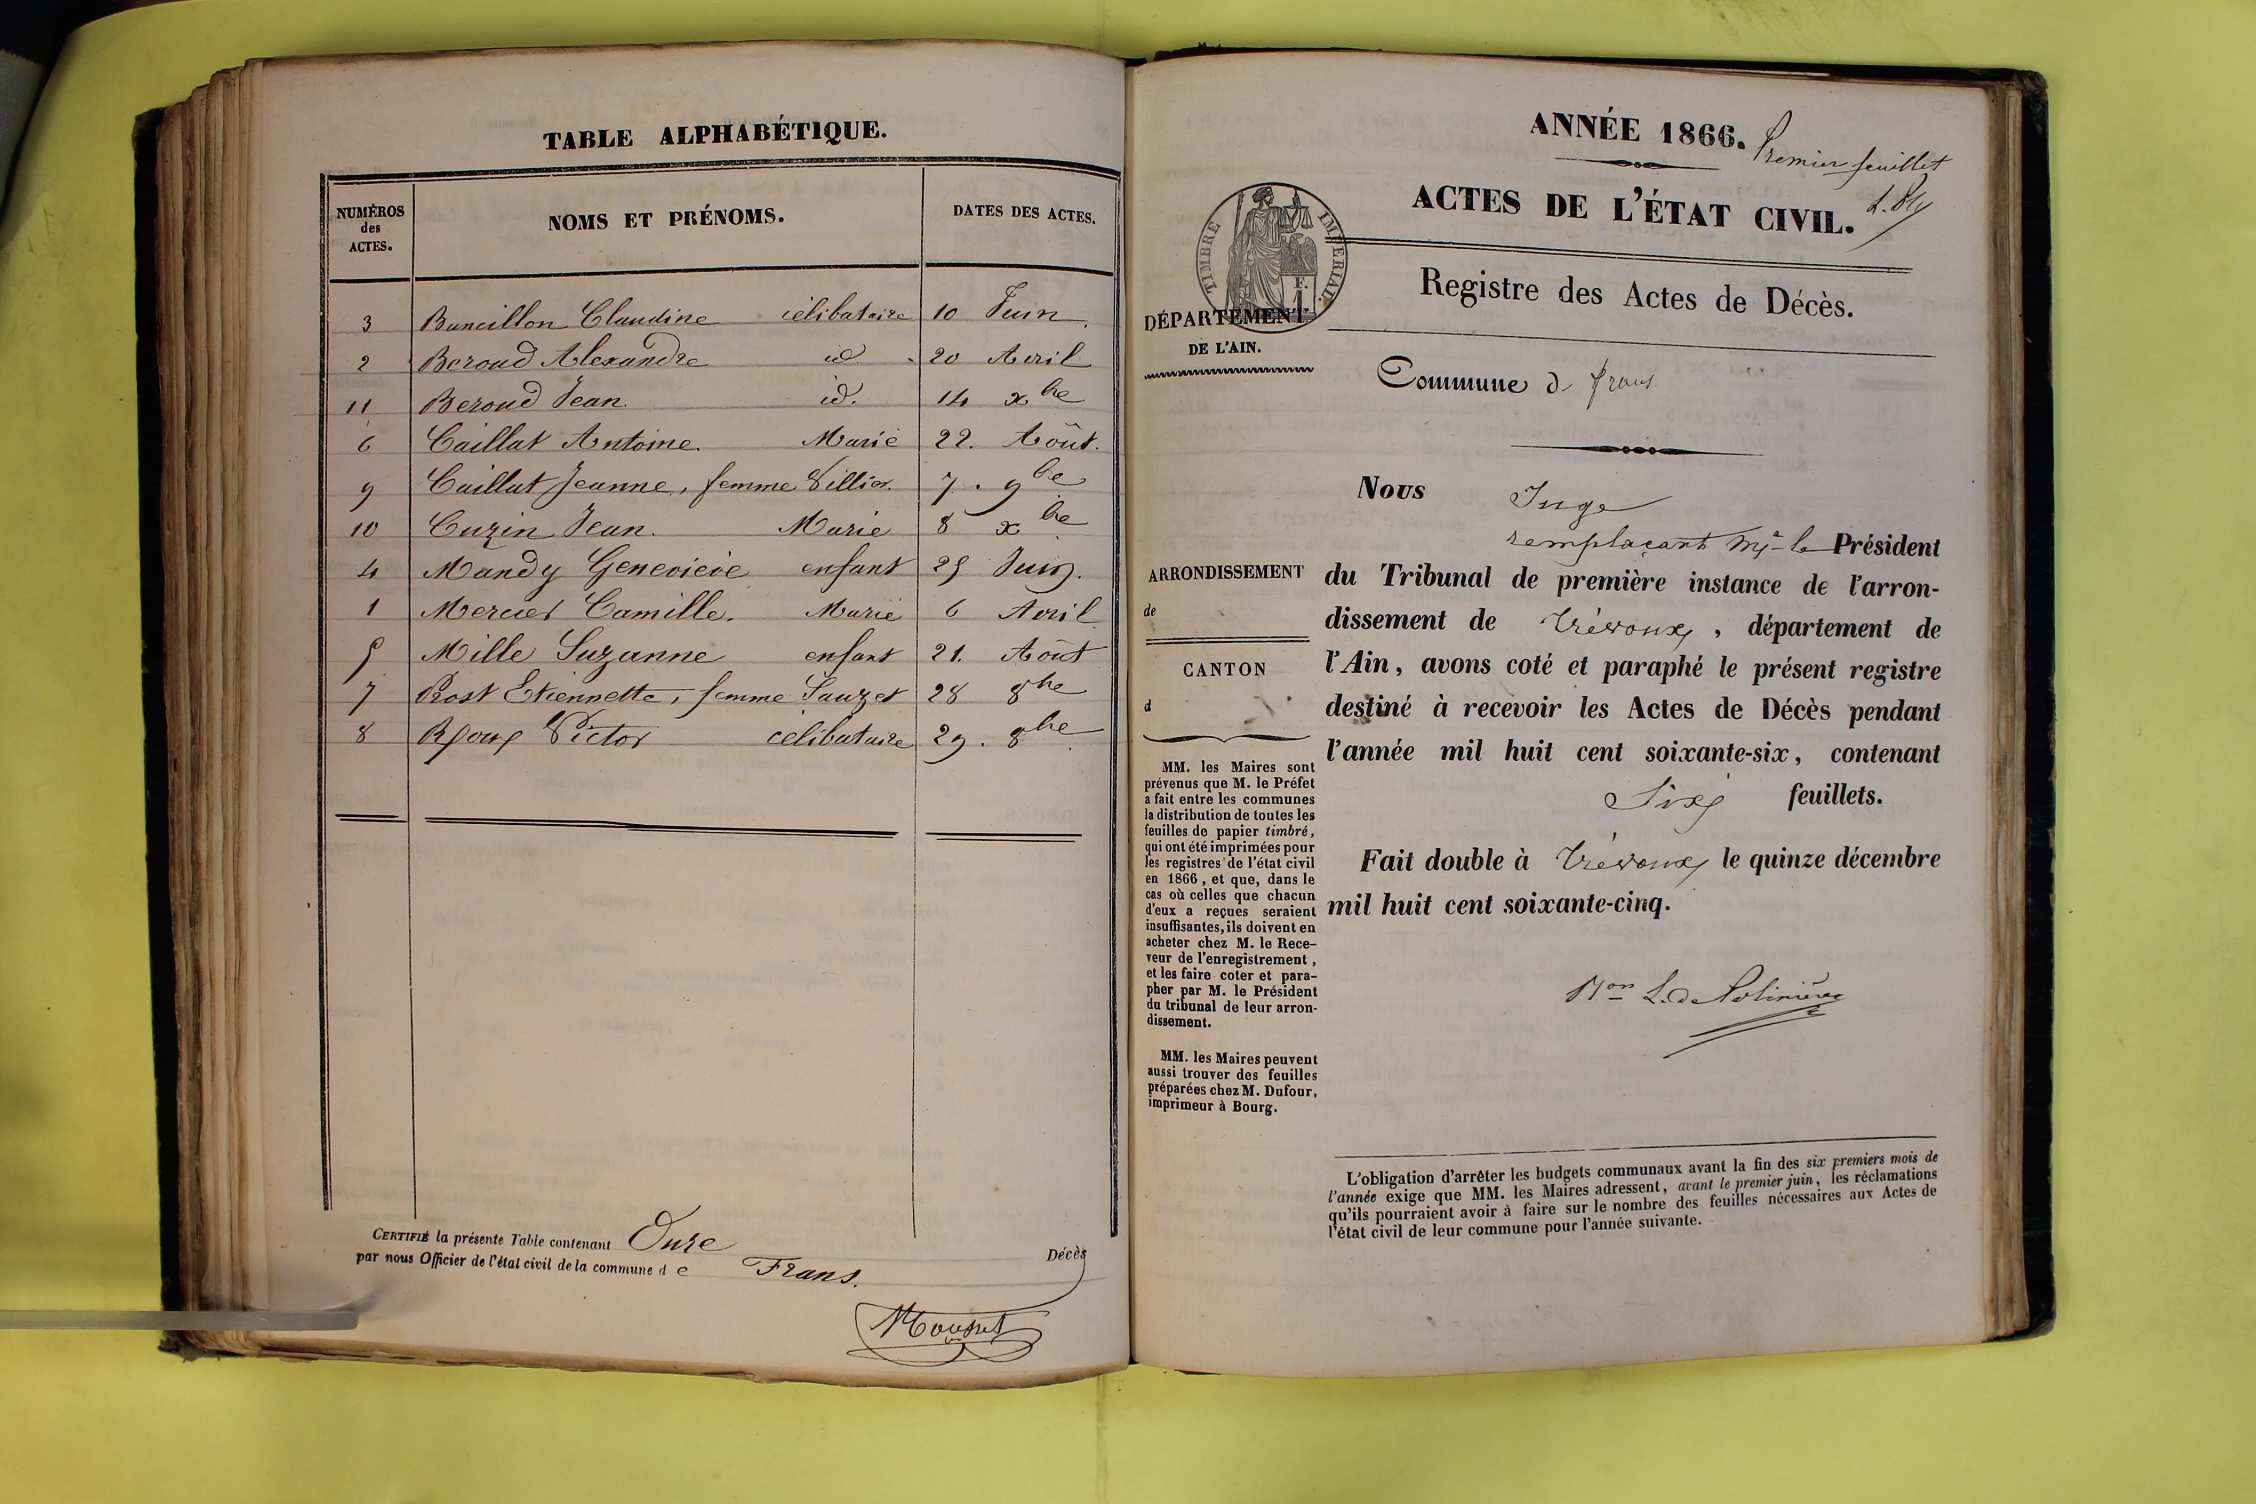 TABLE ALPHABÉTIQUE.
NUMÉROS des ACTES. NOMS ET PRÉNOMS. DATES DES ACTES.
3 Bancillon Claudine célibataire 10 Juin.
2 Beroud Alexandre id 20 Avril
11 Beroud Jean. id. 14 xbre
6 Caillat Antoine. Marié 22. Août.
9 Caillat Jeanne, femme Villier. 7. 9bre
10 Cuzin Jean. Marié 8 xbre
4 Mandy Geneviève enfant 25 Juin.
1 Mercier Camille. Marié 6 Avril
5 Mille Suzanne enfant 21. Août
7 Prost Etiennette, femme Sauzet 28 8bre
8 Roux Victor célibataire 29. 8bre
CERTIFIÉ la présente Table contenant Onze Décès
par nous Officier de l'état civil de la commune de Frans.
ANNÉE 1866.
Premier feuillet
ACTES DE L'ÉTAT CIVIL.
TIMBRE IMPERIAL
F.
1
Registre des Actes de Décès.
DÉPARTEMENT
DE L'AIN.
Commune d frans
Nous Juge
remplaçant Mr le Président
du Tribunal de première instance de l'arron-
dissement de Trévoux, département de
l'Ain, avons coté et paraphé le présent registre
destiné à recevoir les Actes de Décès pendant
l'année mil huit cent soixante-six, contenant
Six feuillets.
Fait double à Trévoux le quinze décembre
mil huit cent soixante-cinq.
ARRONDISSEMENT
de
CANTON
d
MM. les Maires sont
prévenus que M. le Préfet
a fait entre les communes
la distribution de toutes les
feuilles de papier timbré,
qui ont été imprimées pour
les registres de l'état civil
en 1866, et que, dans le
cas où celles que chacun
d'eux a reçues seraient
insuffisantes, ils doivent en
acheter chez M. le Rece-
veur de l'enregistrement,
et les faire coter et para-
pher par M. le Président
du tribunal de leur arron-
dissement.
MM. les Maires peuvent
aussi trouver des feuilles
préparées chez M. Dufour,
imprimeur à Bourg.
L'obligation d'arrêter les budgets communaux avant la fin des six premiers mois de
l'année exige que MM. les Maires adressent, avant le premier juin, les réclamations
qu'ils pourraient avoir à faire sur le nombre des feuilles nécessaires aux Actes de
l'état civil de leur commune pour l'année suivante.